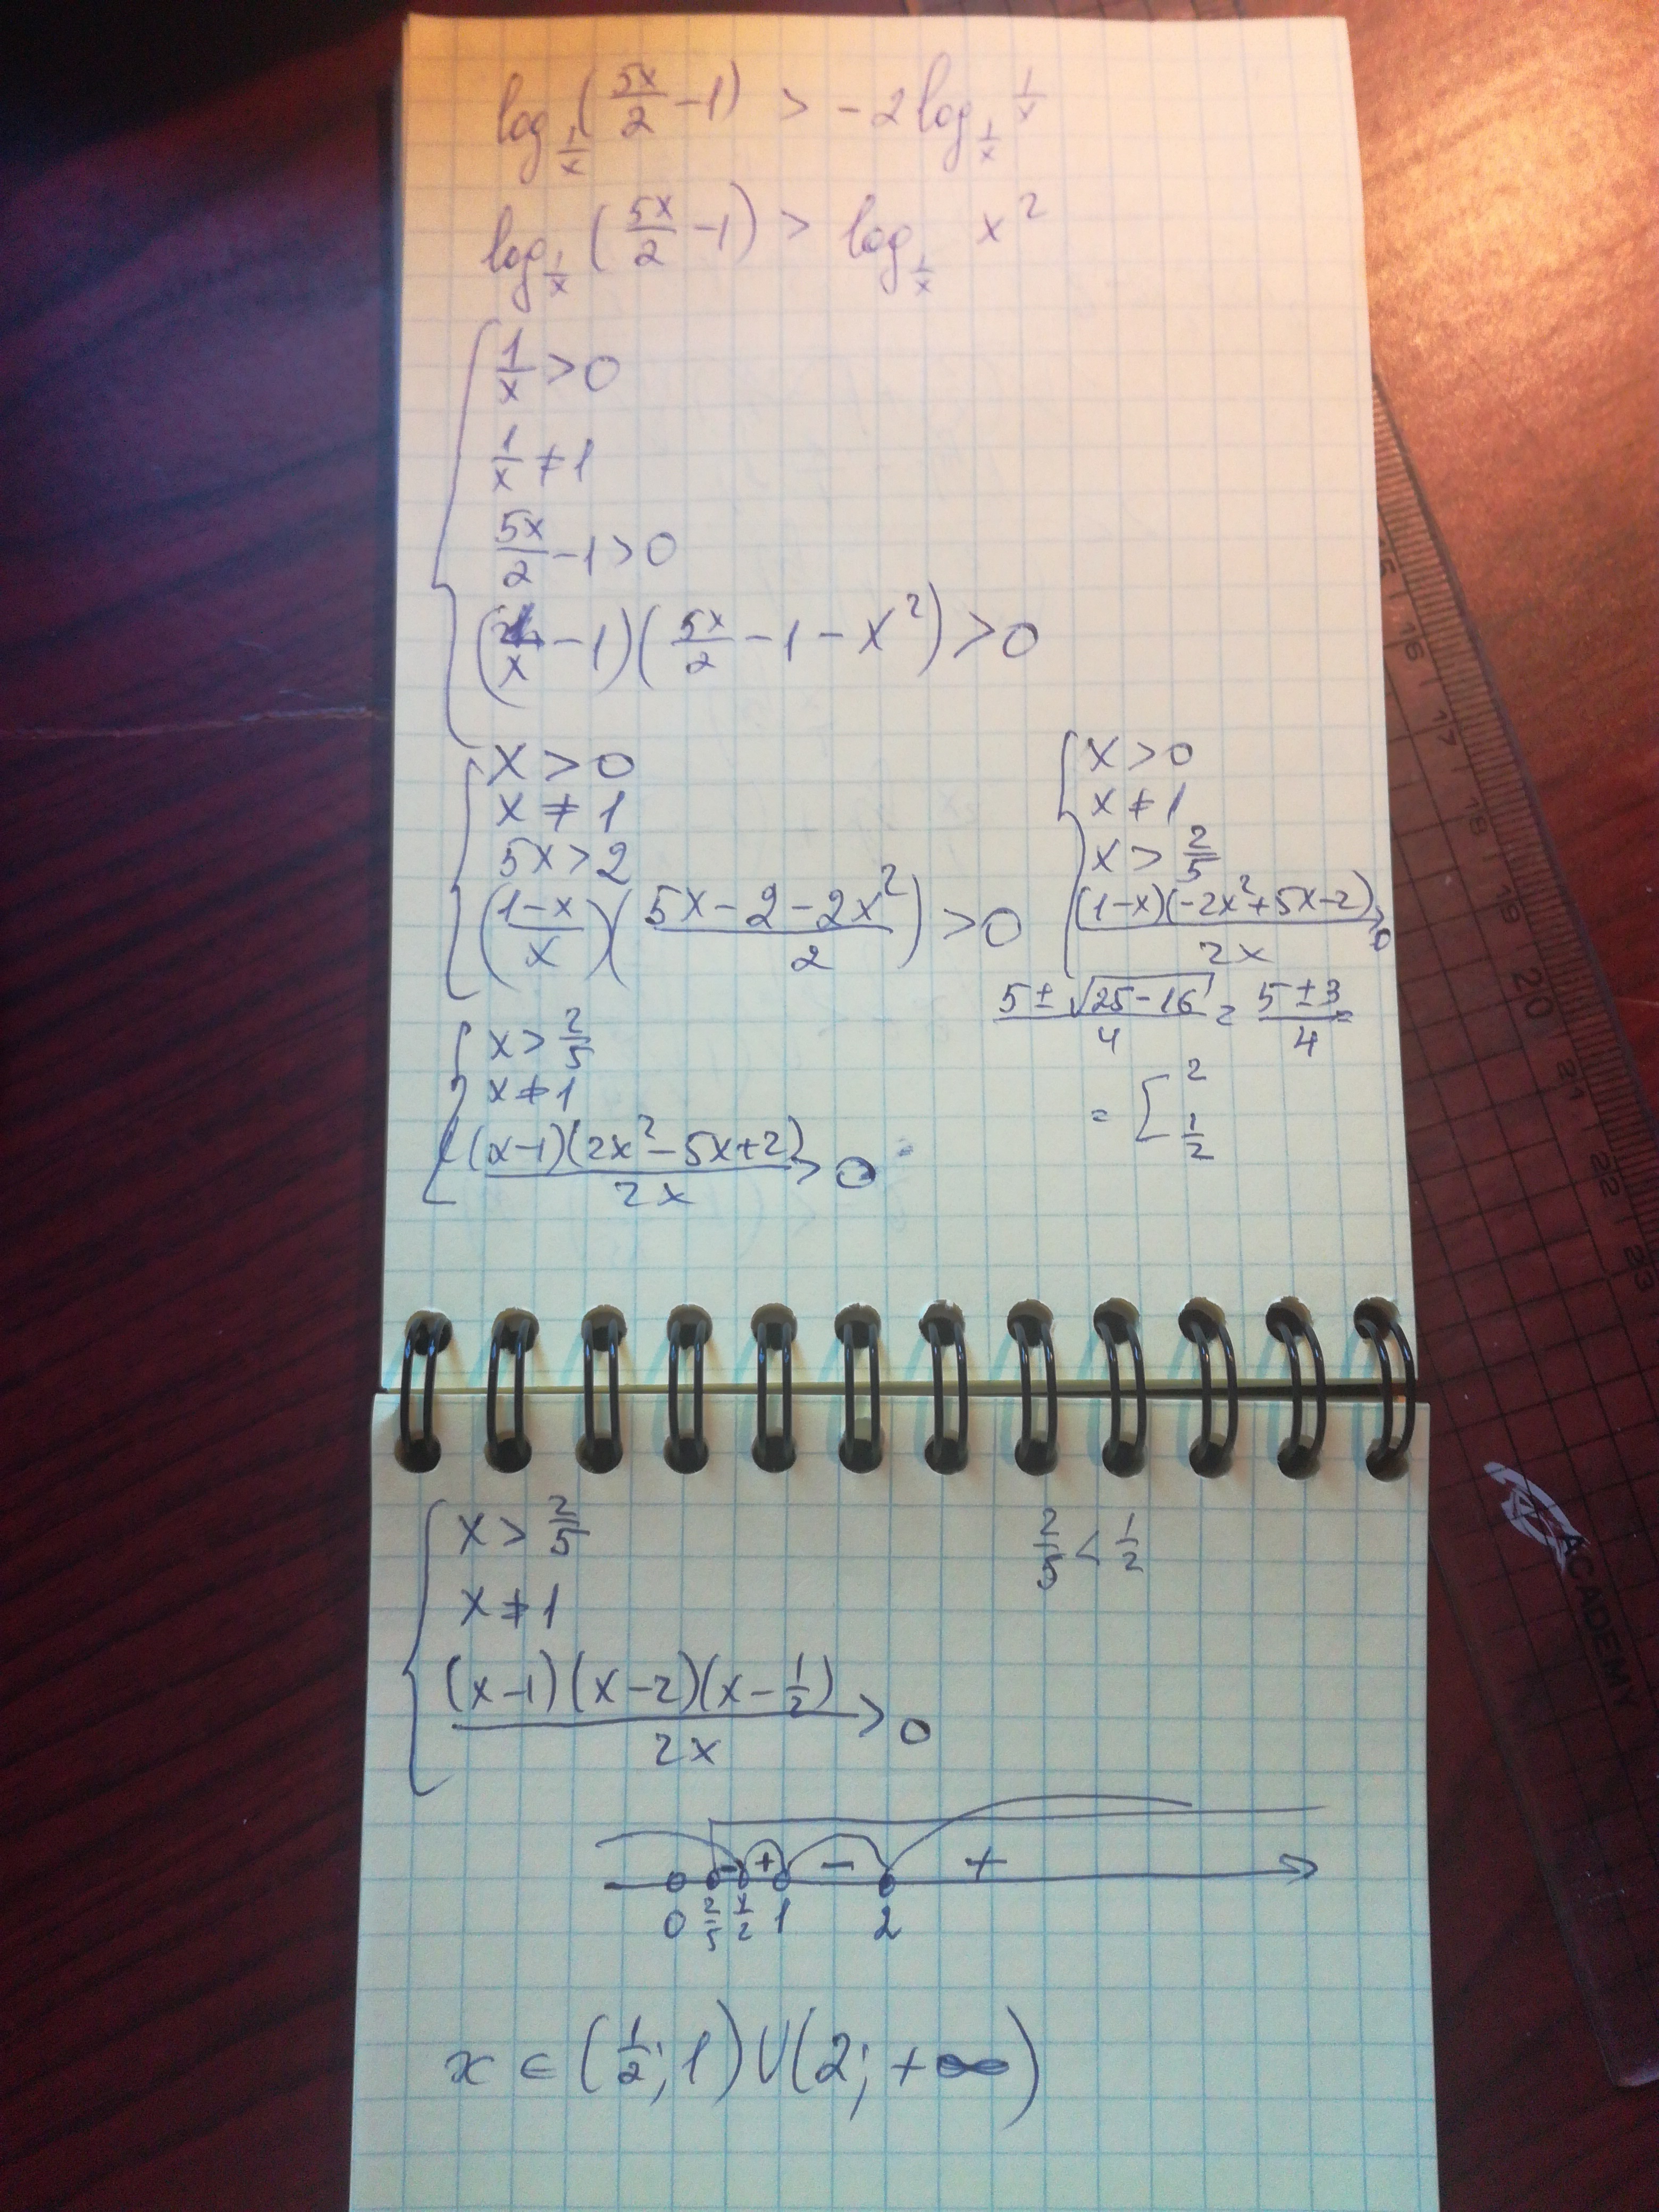 log_{1/x} (5x/2 − 1) > −2 log_{1/x} 1/x
log_{1/x} (5x/2 − 1) > log_{1/x} x²
1/x > 0
1/x ≠ 1
5x/2 − 1 > 0
(1/x − 1)(5x/2 − 1 − x²) > 0
x > 0
x ≠ 1
5x > 2
((1−x)/x)((5x − 2 − 2x²)/2) > 0
x > 0
x ≠ 1
x > 2/5
(1−x)(−2x²+5x−2)/2x > 0
(5 ± √(25−16))/4 = (5 ± 3)/4 =
= [ 2
1/2
x > 2/5
x ≠ 1
(x−1)(2x²−5x+2)/2x > 0
x > 2/5
x ≠ 1
(x−1)(x−2)(x−1/2)/2x > 0
2/5 < 1/2
− + − +
0 2/5 1/2 1 2
x ∈ (1/2; 1) ∪ (2; +∞)
15
16
17
18
19
20
21
22
23
ACADEMY